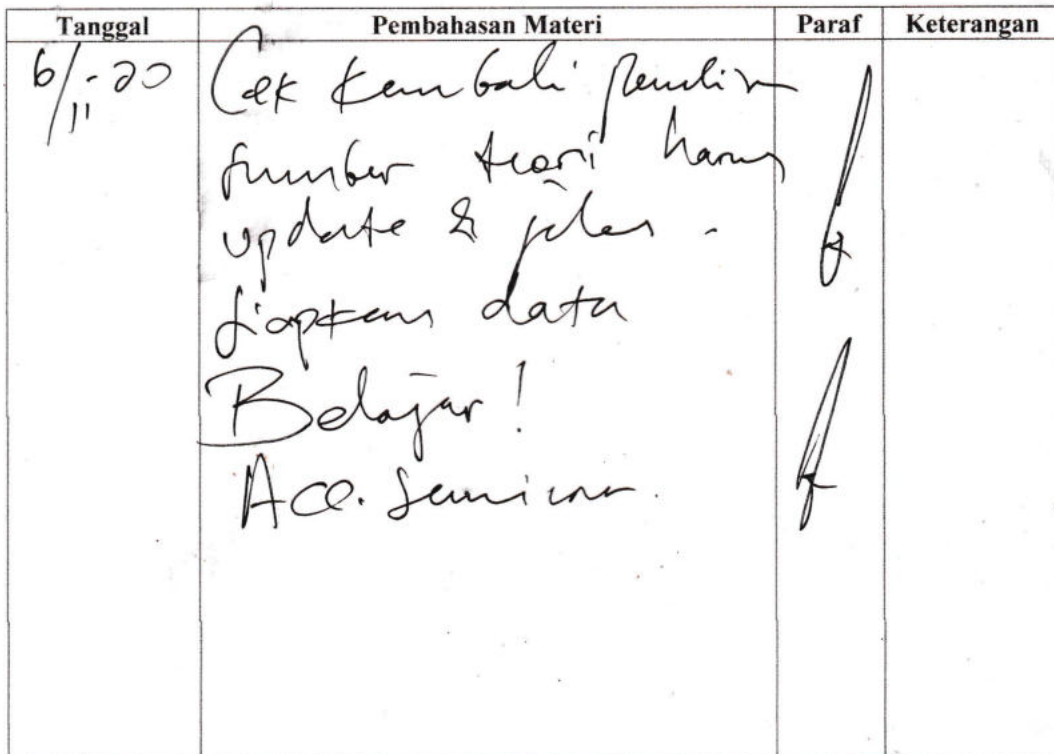 Tanggal Pembahasan Materi Paraf Keterangan
6/11-20 Cek kembali penulisan
sumber teori harus
update & jelas.
Siapkan data
Belajar!
Acc. Seminar.